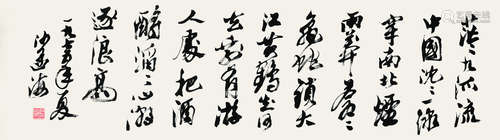 茫茫九派流
中国沈沈一线
穿南北烟
雨莽苍苍
龟蛇锁大
江黄鹤知何
去剩有游
人处把酒
酹滔滔心潮
逐浪高
一九七五年夏
沙孟海